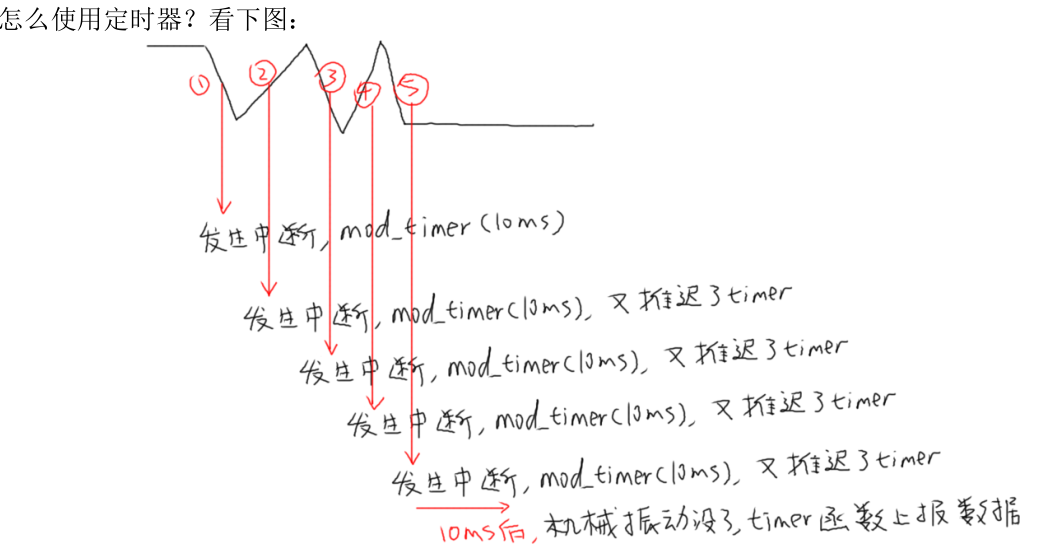 怎么使用定时器？看下图：
① ② ③ ④ ⑤
发生中断, mod_timer(10ms)
发生中断, mod_timer(10ms), 又推迟了timer
发生中断, mod_timer(10ms), 又推迟了timer
发生中断, mod_timer(10ms), 又推迟了timer
发生中断, mod_timer(10ms), 又推迟了timer
10ms后, 机械振动没了, timer函数上报数据